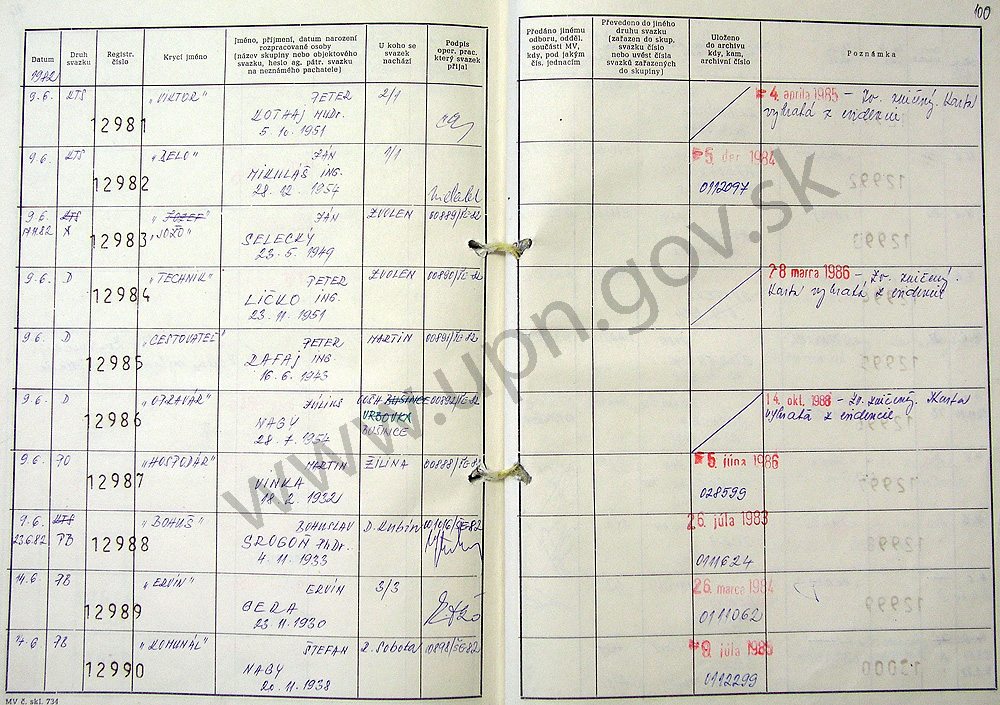 100
Datum
Druh svazku
Registr. číslo
Krycí jméno
Jméno, příjmení, datum narození rozpracované osoby (název skupiny nebo objektového svazku, heslo ag. pátr. svazku na neznámého pachatele)
U koho se svazek nachází
Podpis oper. prac. který svazek přijal
Předáno jinému odboru, odděl. součásti MV, kdy, pod jakým čís. jednacím
Převedeno do jiného druhu svazku (zařazen do skup. svazku číslo nebo uvést čísla svazků zařazených do skupiny)
Uloženo do archivu kdy, kam, archivní číslo
Poznámka
1982
9.6. KTS 12981 „VIKTOR" PETER 2/1
KOTHAJ MUDr.
5. 10. 1951
4. apríla 1985 – Zv. zničený. Karta
vybratá z evidencie
9.6. KTS 12982 „DELO" JÁN 1/1
MIKULÁŠ ING.
28. 12. 1954
5. dec 1984
0112097
9.6. KTS 12983 „JOZEF" JÁN ZVOLEN 00889/ŠE-82
„JOŽO"
SELECKÝ
23. 5. 1949
9.6. D 12984 „TECHNIK" PETER ZVOLEN 00890/ŠE-82
LIČKO ING.
23. 11. 1951
28 marca 1986 – Zv. zničený.
Karta vybratá z evidencie
9.6. D 12985 „CESTOVATEĽ" PETER MARTIN 00891/ŠE-82
RAFAJ ING
16. 6. 1943
9.6. D 12986 „OPRAVÁR" JÚLIUS OOCH BUŠINCE 00892/ŠE-82
VRBOVKA
BUŠINCE
NAGY
28. 7. 1954
14. okt. 1988 – Zv. zničený. Karta
vybratá z evidencie.
9.6. PO 12987 „HOSPODÁR" MARTIN ŽILINA 00888/ŠE-82
VINKA
18. 2. 1932
5. júna 1986
028599
9.6. KTS 12988 „BOHUŠ" BOHUSLAV D. Kubín 001016/ŠE-82
23.6.82 PB
SROGOŇ PhDr.
4. 11. 1933
26. júla 1983
011624
14.6. PB 12989 „ERVÍN" ERVÍN 3/3
GERA
23 11. 1930
26 marca 1984
0111062
PB 12990 „KOMUNÁL" ŠTEFAN R. Sobota 00898/ŠE-82
NAGY
20. 11. 1938
9. júla 1985
0112299
MV č. skl. 734
www.upn.gov.sk